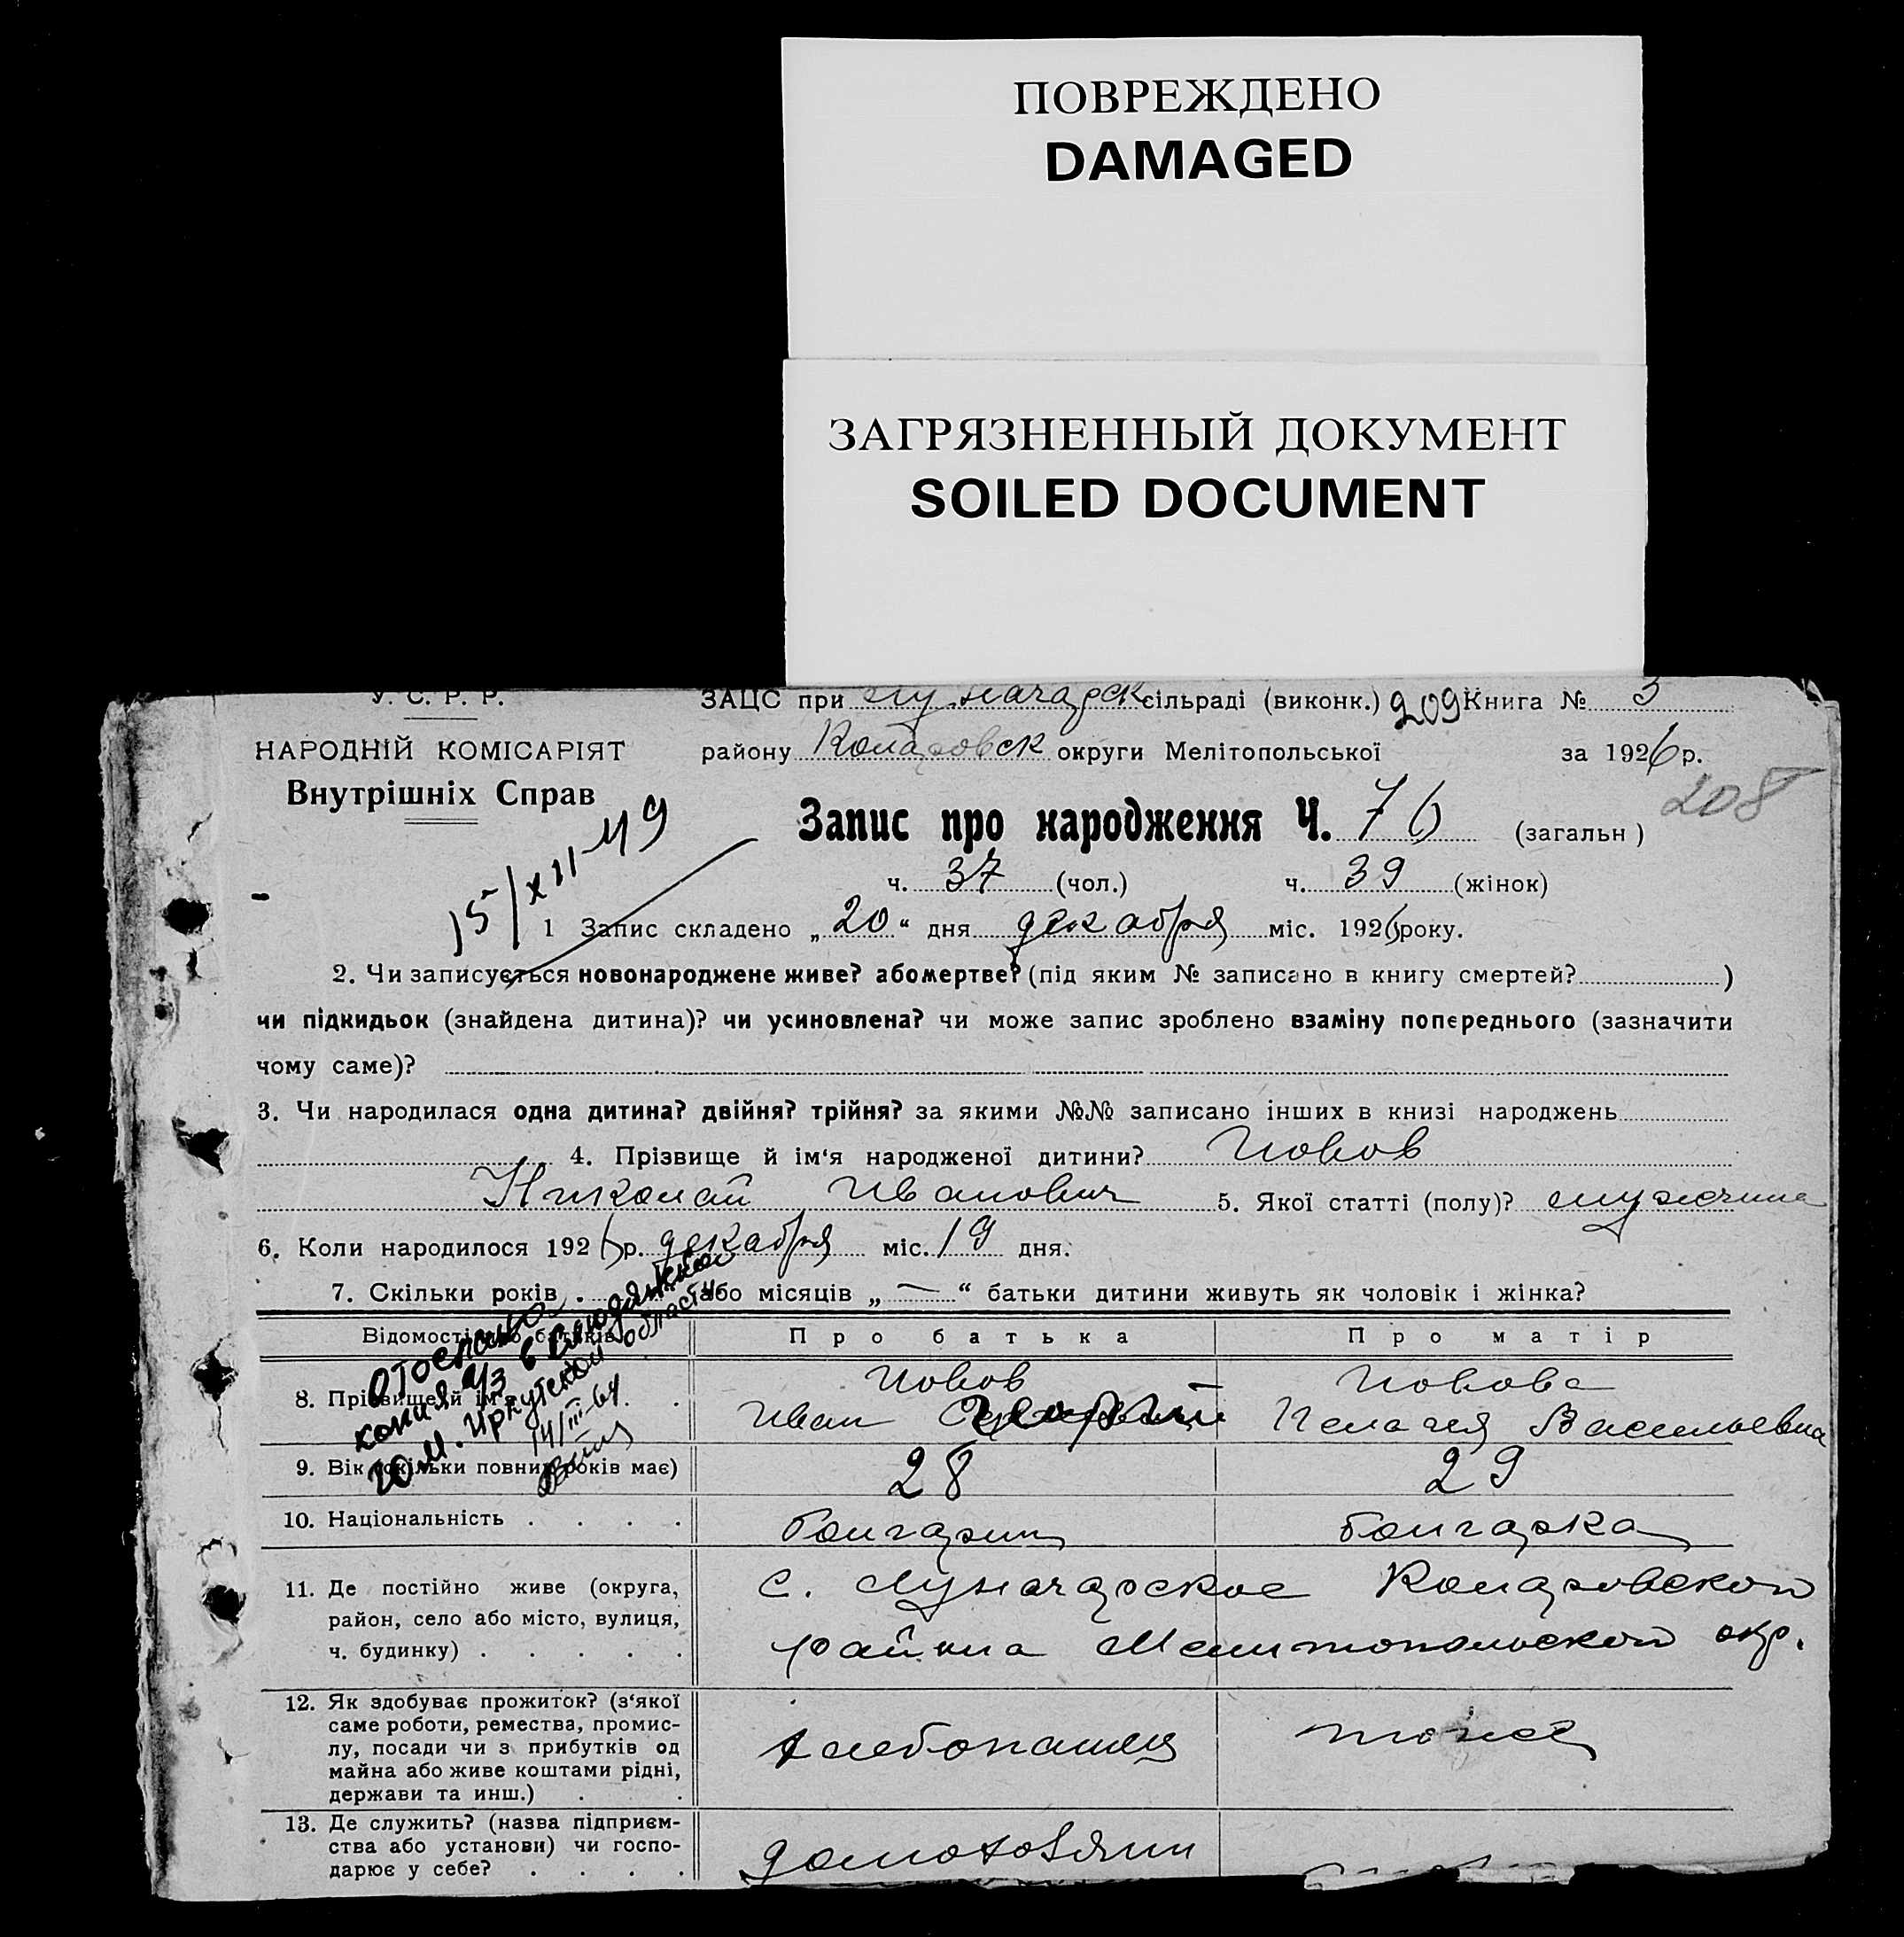 ПОВРЕЖДЕНО
DAMAGED
ЗАГРЯЗНЕННЫЙ ДОКУМЕНТ
SOILED DOCUMENT
У. С. Р. Р.
ЗАЦС при Луначарск сільраді (виконк.) 209 Книга № 3
НАРОДНІЙ КОМІСАРІЯТ
району Коларовск округи Мелітопольської за 1926 р.
Внутрішніх Справ
208
15/XII-49
Запис про народження Ч. 76 (загальн)
ч. 37 (чол.) ч. 39 (жінок)
1 Запис складено „20“ дня декабря міс. 1926 року.
2. Чи записується новонароджене живе? або мертве? (під яким № записано в книгу смертей? )
чи підкидьок (знайдена дитина)? чи усиновлена? чи може запис зроблено взаміну попереднього (зазначити
чому саме)?
3. Чи народилася одна дитина? двійня? трійня? за якими №№ записано інших в книзі народжень
4. Прізвище й ім'я народженої дитини? Попов
Николай Иванович 5. Якої статті (полу)? мужчина
6. Коли народилося 1926 р. декабря міс. 19 дня.
7. Скільки років або місяців „—“ батьки дитини живуть як чоловік і жінка?
Відомості про батьків Про батька Про матір
8. Прізвище й ім'я Попов Попова
Иван Пелагея Васильевна
9. Вік (скільки повних років має) 28 29
10. Національність . . . . болгарин болгарка
11. Де постійно живе (округа, район, село або місто, вулиця, ч. будинку) . . . . .
с. Луначарское Коларовского
района Мелитопольской окр.
12. Як здобуває прожиток? (з'якої
саме роботи, ремества, промис-
лу, посади чи з прибутків од
майна або живе коштами рідні,
держави та инш.) . .
хлебопашец тоже
13. Де служить? (назва підприєм-
ства або установи) чи госпо-
дарює у себе? . . . .
домохозяин
Отослана
копия а/з в Слюдянкой
Иркутской области
14/III-64